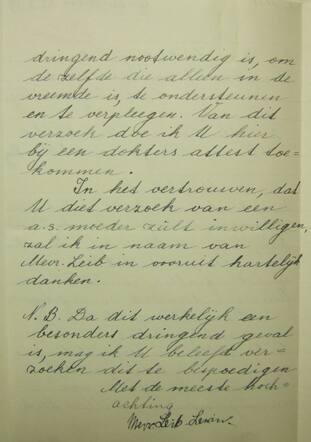 dringend nootwendig is, om
de zelfde die alleen in de
vreemde is, te ondersteunen
en te verpleegen. Van dit
verzoek doe ik U hier
bij een dokters attest toe-
kommen.
In het vertrouwen, dat
U diet verzoek van een
a.s. moeder zult inwilligen,
zal ik in naam van
Mevr. Leib in vooruit hartelijk
danken.
N.B. Da dit werkelijk een
besonders dringend geval
is, mag ik U beleefd ver-
zoeken dit te bespoedigen
Met de meeste hoch-
achting
Mevr Leib